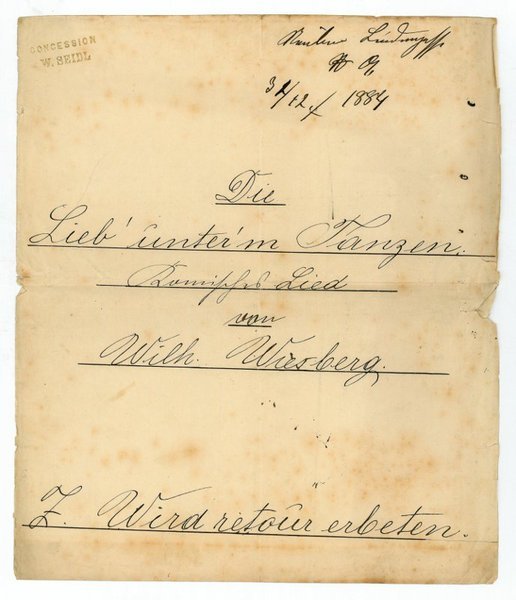 CONCESSION
W. SEIDL
31/12./ 1884
Die
Lieb' unter'm Tanzen.
Komisches Lied
von
Wilh. Wiesberg.
Z. Wird retoúr erbeten.